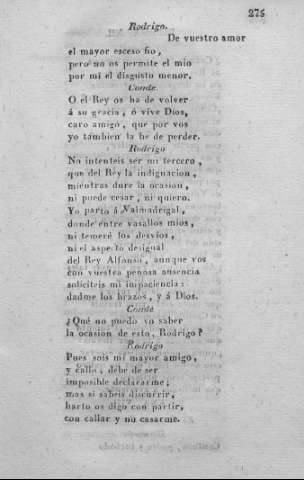 275
Rodrigo.
De vuestro amor
el mayor esceso fio,
pero no os permite el mio
por mí el disgusto menor.
Conde.
O el Rey os ha de volver
á su gracia, ó vive Dios,
caro amigo, que por vos
yo tambien la he de perder.
Rodrigo
No intenteis ser mi tercero,
que del Rey la indignacion,
mientras dure la ocasion,
ni puede cesar, ni quiero.
Yo parto á Valmadrigal,
donde entre vasallos mios,
ni temeré los desvíos,
ni el aspecto desigual
del Rey Alfonso, aunque vos
con vuestra penosa ausencia
soliciteis mi impaciencia:
dadme los brazos, y á Dios.
Conde
¿Qué no puedo yo saber
la ocasion de esto, Rodrigo?
Rodrigo
Pues sois mi mayor amigo,
y callo, debe de ser
imposible declararme;
mas si sabeis discurrir,
harto os digo con partir,
con callar y no casarme.